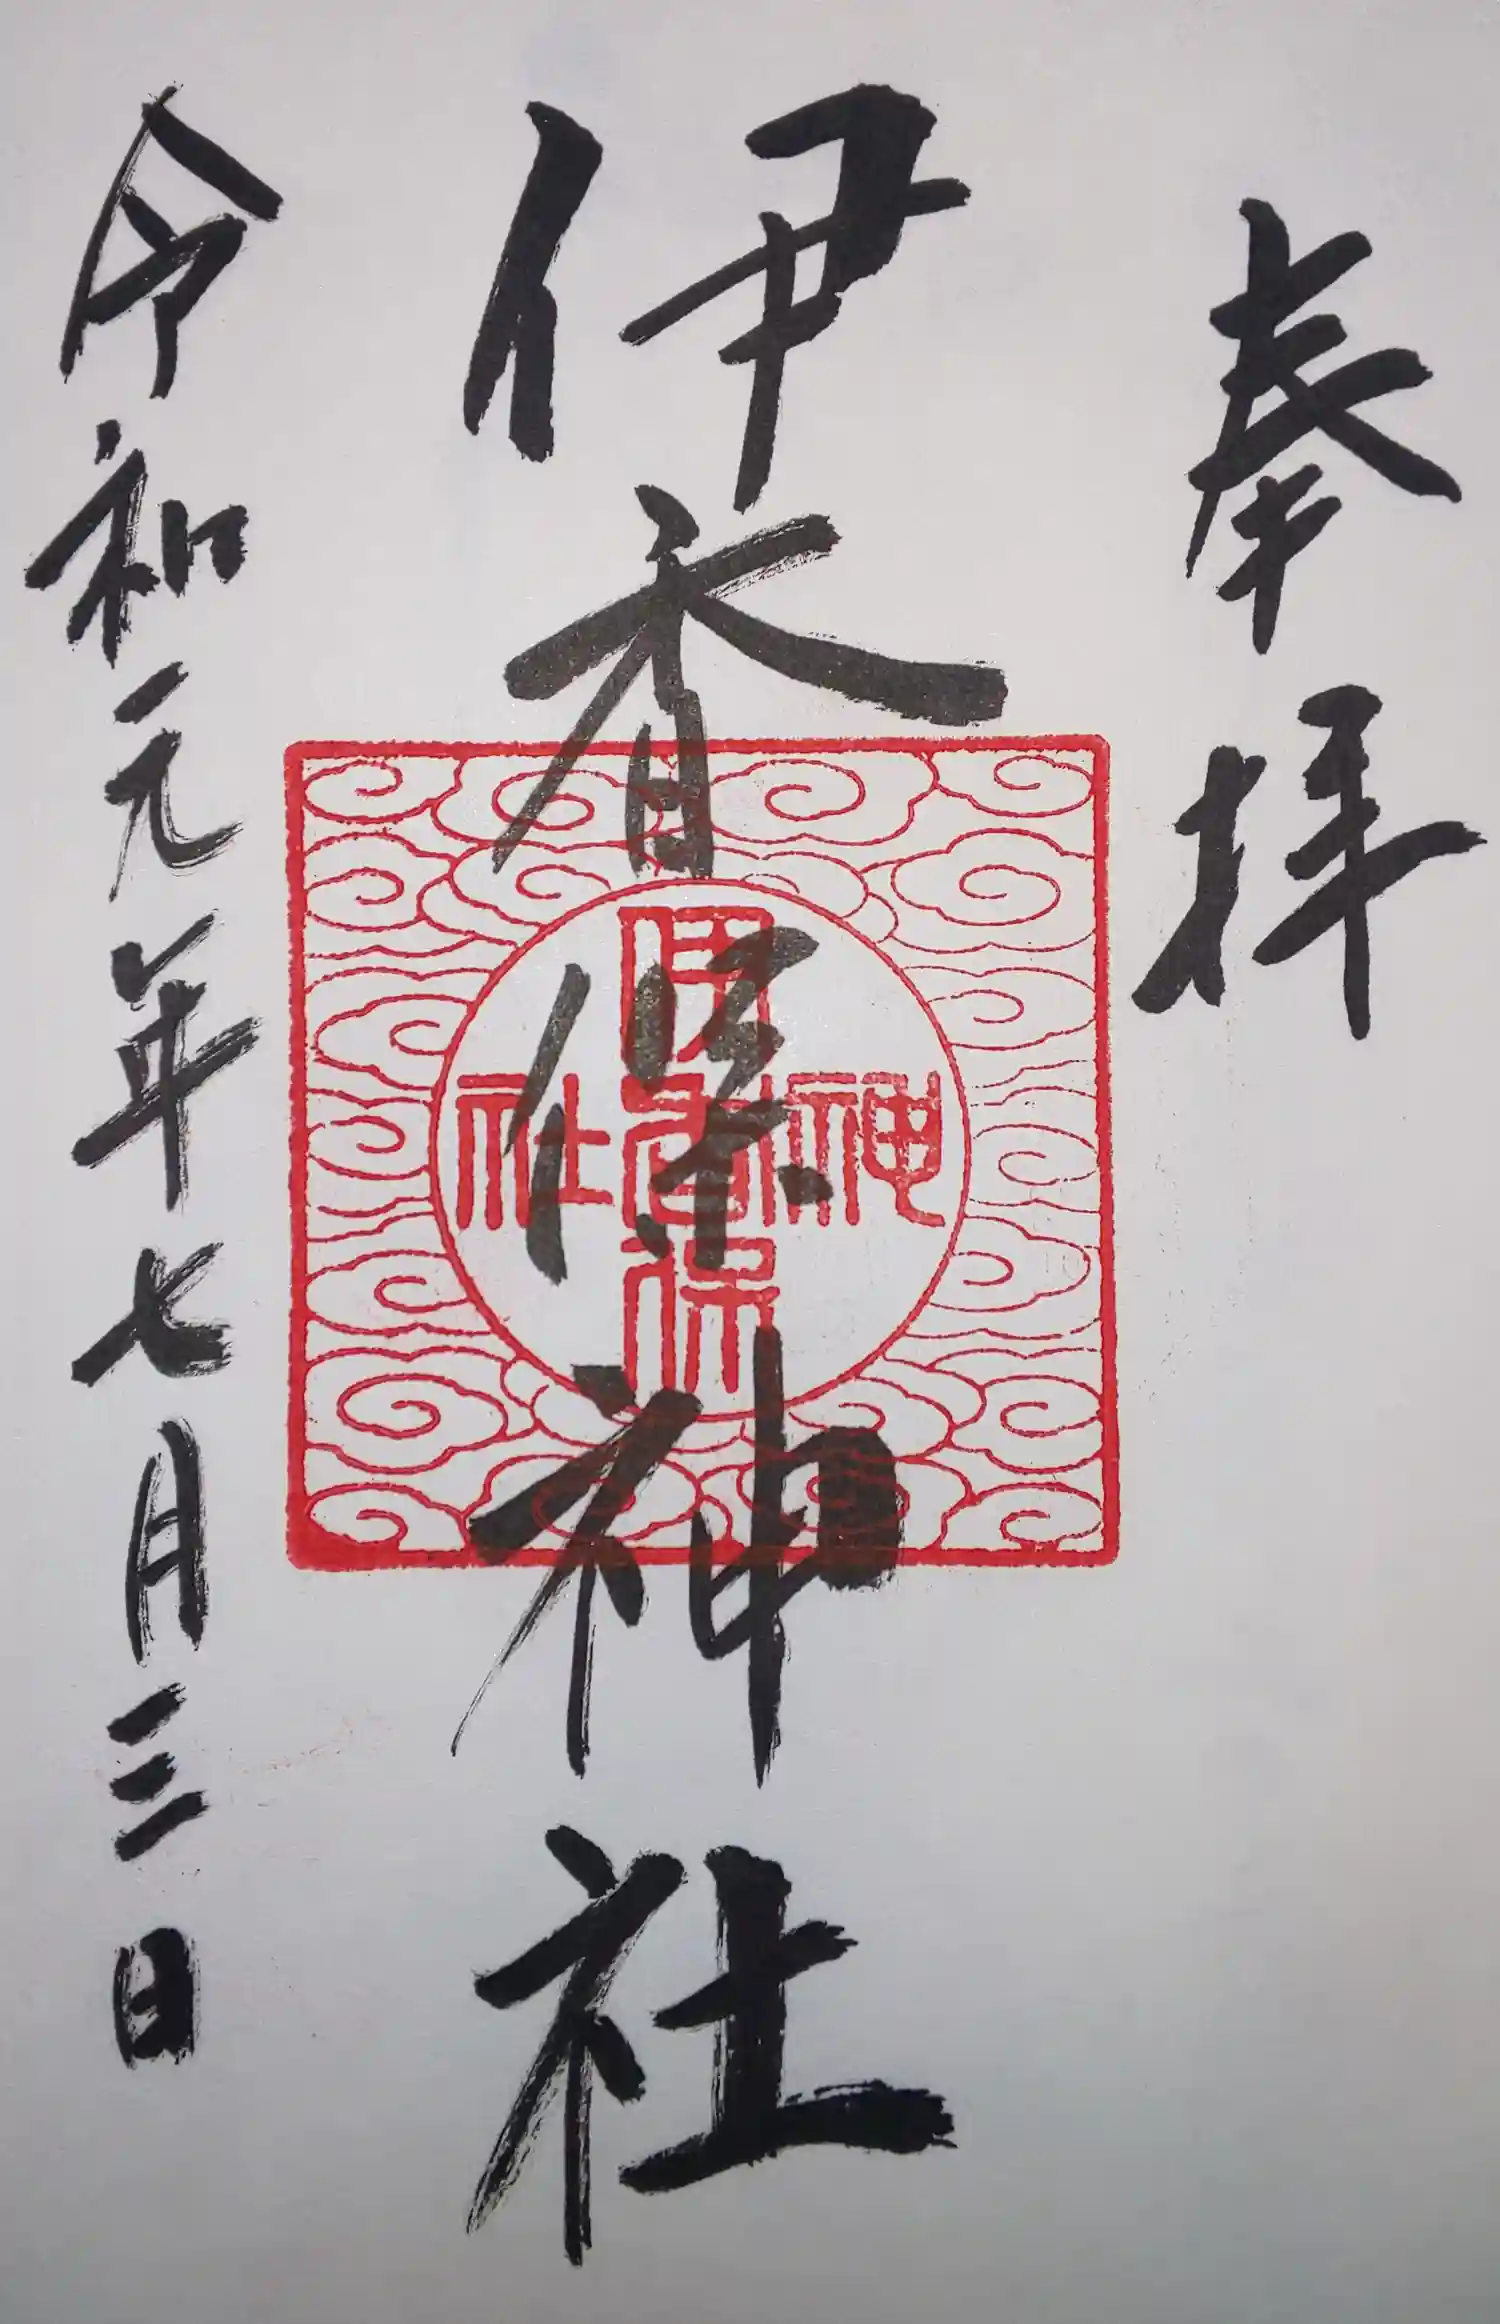 奉拝
伊香保神社
令和元年七月三日
保
神社